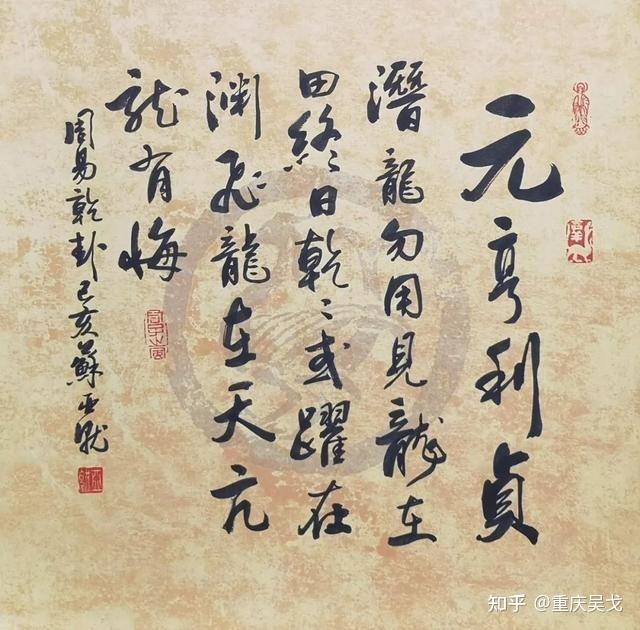 元亨利貞
潛龍勿用見龍在
田終日乾〻或躍在
渊飛龍在天亢
龍有悔
周易乾卦己亥蘇亚
知乎 @重庆吴戈